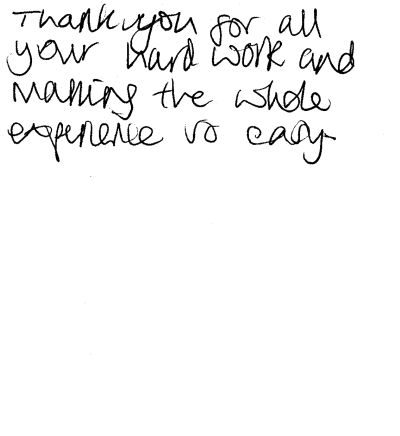 Thank you for all
your hard work and
making the whole
experience so easy